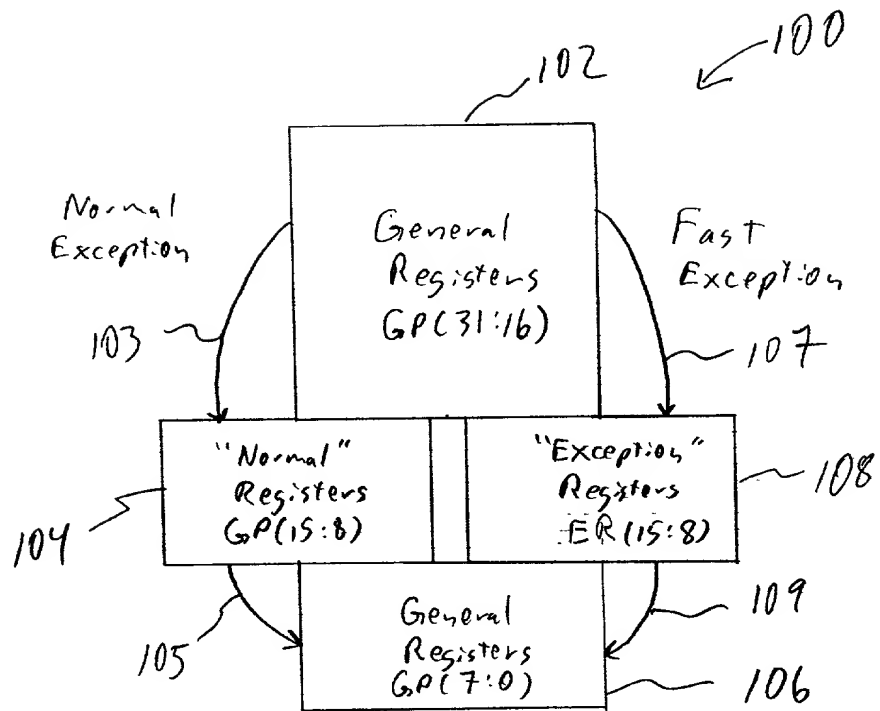 100
102
Normal
Exception
General
Registers
GP(31:16)
Fast
Exception
103
107
"Normal"
Registers
GP(15:8)
"Exception"
Registers
ER(15:8)
104
108
105
General
Registers
GP(7:0)
109
106